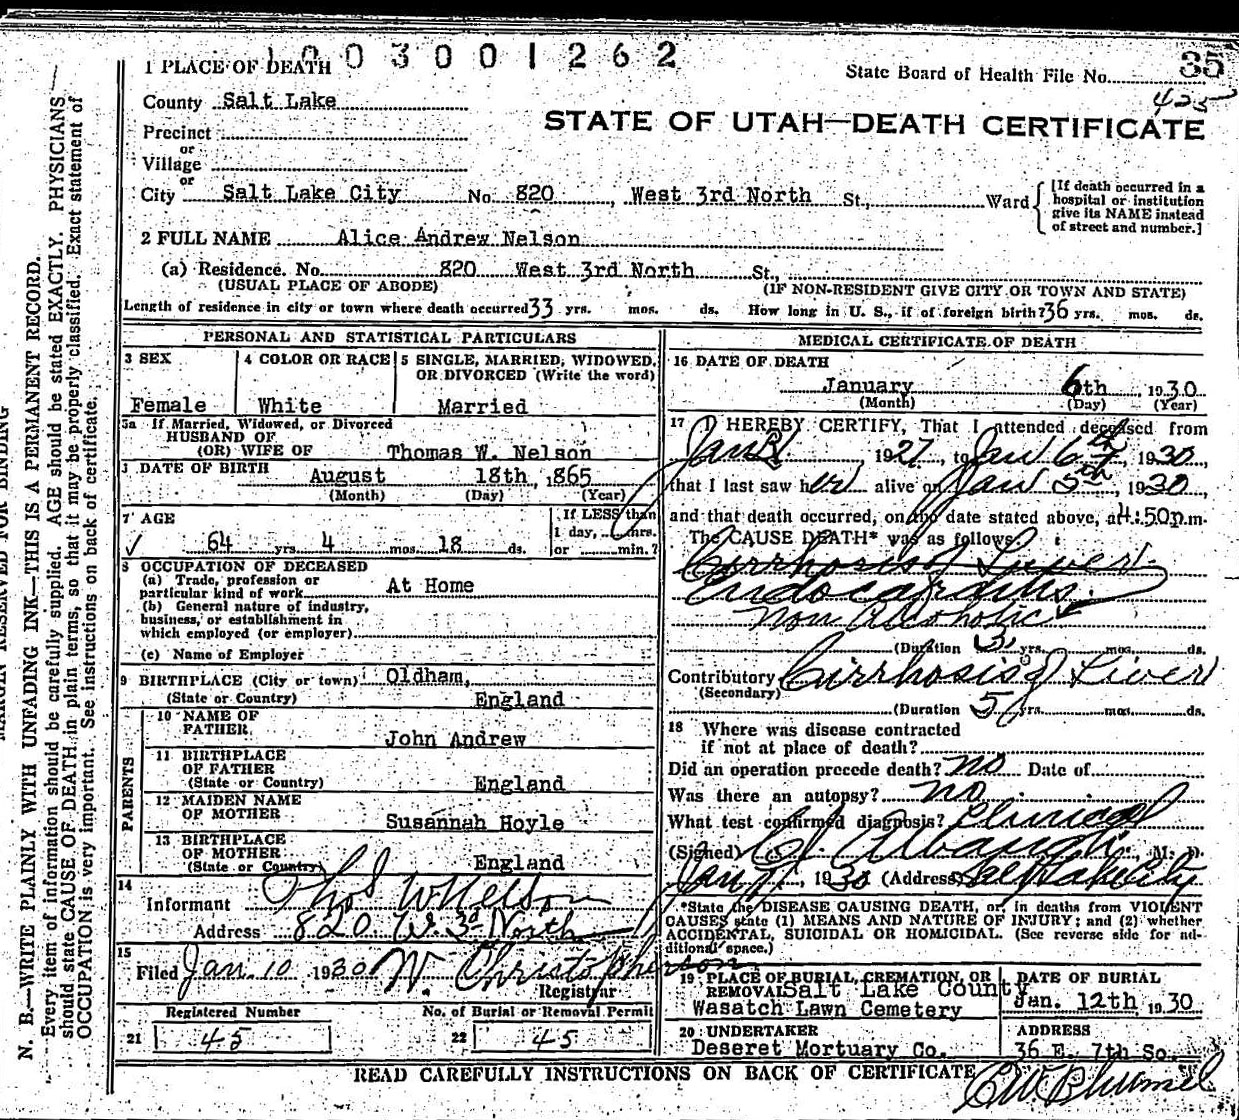 1003001262
35
1 PLACE OF DEATH
State Board of Health File No.
425
County Salt Lake
STATE OF UTAH—DEATH CERTIFICATE
Precinct
or
Village
or
City Salt Lake City No. 820, West 3rd North St., Ward
[If death occurred in a
hospital or institution
give its NAME instead
of street and number.]
2 FULL NAME Alice Andrew Nelson
(a) Residence. No. 820 West 3rd North St.,
(USUAL PLACE OF ABODE) (IF NON-RESIDENT GIVE CITY OR TOWN AND STATE)
Length of residence in city or town where death occurred 33 yrs. mos. ds. How long in U. S., if of foreign birth? 36 yrs. mos. ds.
PERSONAL AND STATISTICAL PARTICULARS
3 SEX
Female
4 COLOR OR RACE
White
5 SINGLE, MARRIED, WIDOWED,
OR DIVORCED (Write the word)
Married
5a If Married, Widowed, or Divorced
HUSBAND OF
(OR) WIFE OF Thomas W. Nelson
DATE OF BIRTH
August 18th, 1865
(Month) (Day) (Year)
7 AGE
64 yrs. 4 mos. 18 ds.
If LESS than
1 day, hrs.
or min.?
8 OCCUPATION OF DECEASED
(a) Trade, profession or
particular kind of work At Home
(b) General nature of industry,
business, or establishment in
which employed (or employer)
(c) Name of Employer
9 BIRTHPLACE (City or town) Oldham,
(State or Country) England
PARENTS
10 NAME OF
FATHER John Andrew
11 BIRTHPLACE
OF FATHER
(State or Country) England
12 MAIDEN NAME
OF MOTHER Susannah Hoyle
13 BIRTHPLACE
OF MOTHER
(State or Country) England
14
Informant Thos W Nelson
Address 820 W. 3d North
15
Filed Jan 10 1930 W. Christopherson
Registrar
Registered Number
21 45
No. of Burial or Removal Permit
22 45
MEDICAL CERTIFICATE OF DEATH
16 DATE OF DEATH
January 6th, 1930
(Month) (Day) (Year)
17 I HEREBY CERTIFY, That I attended deceased from
Jan 1927, to Jan 6th, 1930,
that I last saw her alive on Jan 5th, 1930,
and that death occurred, on the date stated above, at 4:50p.m.
The CAUSE DEATH* was as follows:
Cirrhosis of Liver
Endocarditis
Non Alcoholic
(Duration 3 yrs. mos. ds.
Contributory Cirrhosis of Liver
(Secondary)
(Duration 5 yrs. mos. ds.
18 Where was disease contracted
if not at place of death?
Did an operation precede death? no Date of
Was there an autopsy? no
What test confirmed diagnosis? Clinical
(Signed) Albaugh M. D.
1930 (Address) Salt Lake City
*State the DISEASE CAUSING DEATH, or in deaths from VIOLENT
CAUSES state (1) MEANS AND NATURE OF INJURY; and (2) whether
ACCIDENTAL, SUICIDAL OR HOMICIDAL. (See reverse side for ad-
ditional space.)
19 PLACE OF BURIAL, CREMATION, OR
REMOVAL Salt Lake County
Wasatch Lawn Cemetery
DATE OF BURIAL
Jan. 12th, 1930
20 UNDERTAKER
Deseret Mortuary Co.
ADDRESS
36 E. 7th So.
READ CAREFULLY INSTRUCTIONS ON BACK OF CERTIFICATE
MARGIN RESERVED FOR BINDING
N. B.—WRITE PLAINLY WITH UNFADING INK—THIS IS A PERMANENT RECORD.
Every item of information should be carefully supplied. AGE should be stated EXACTLY. PHYSICIANS
should state CAUSE OF DEATH in plain terms, so that it may be properly classified. Exact statement of
OCCUPATION is very important. See instructions on back of certificate.